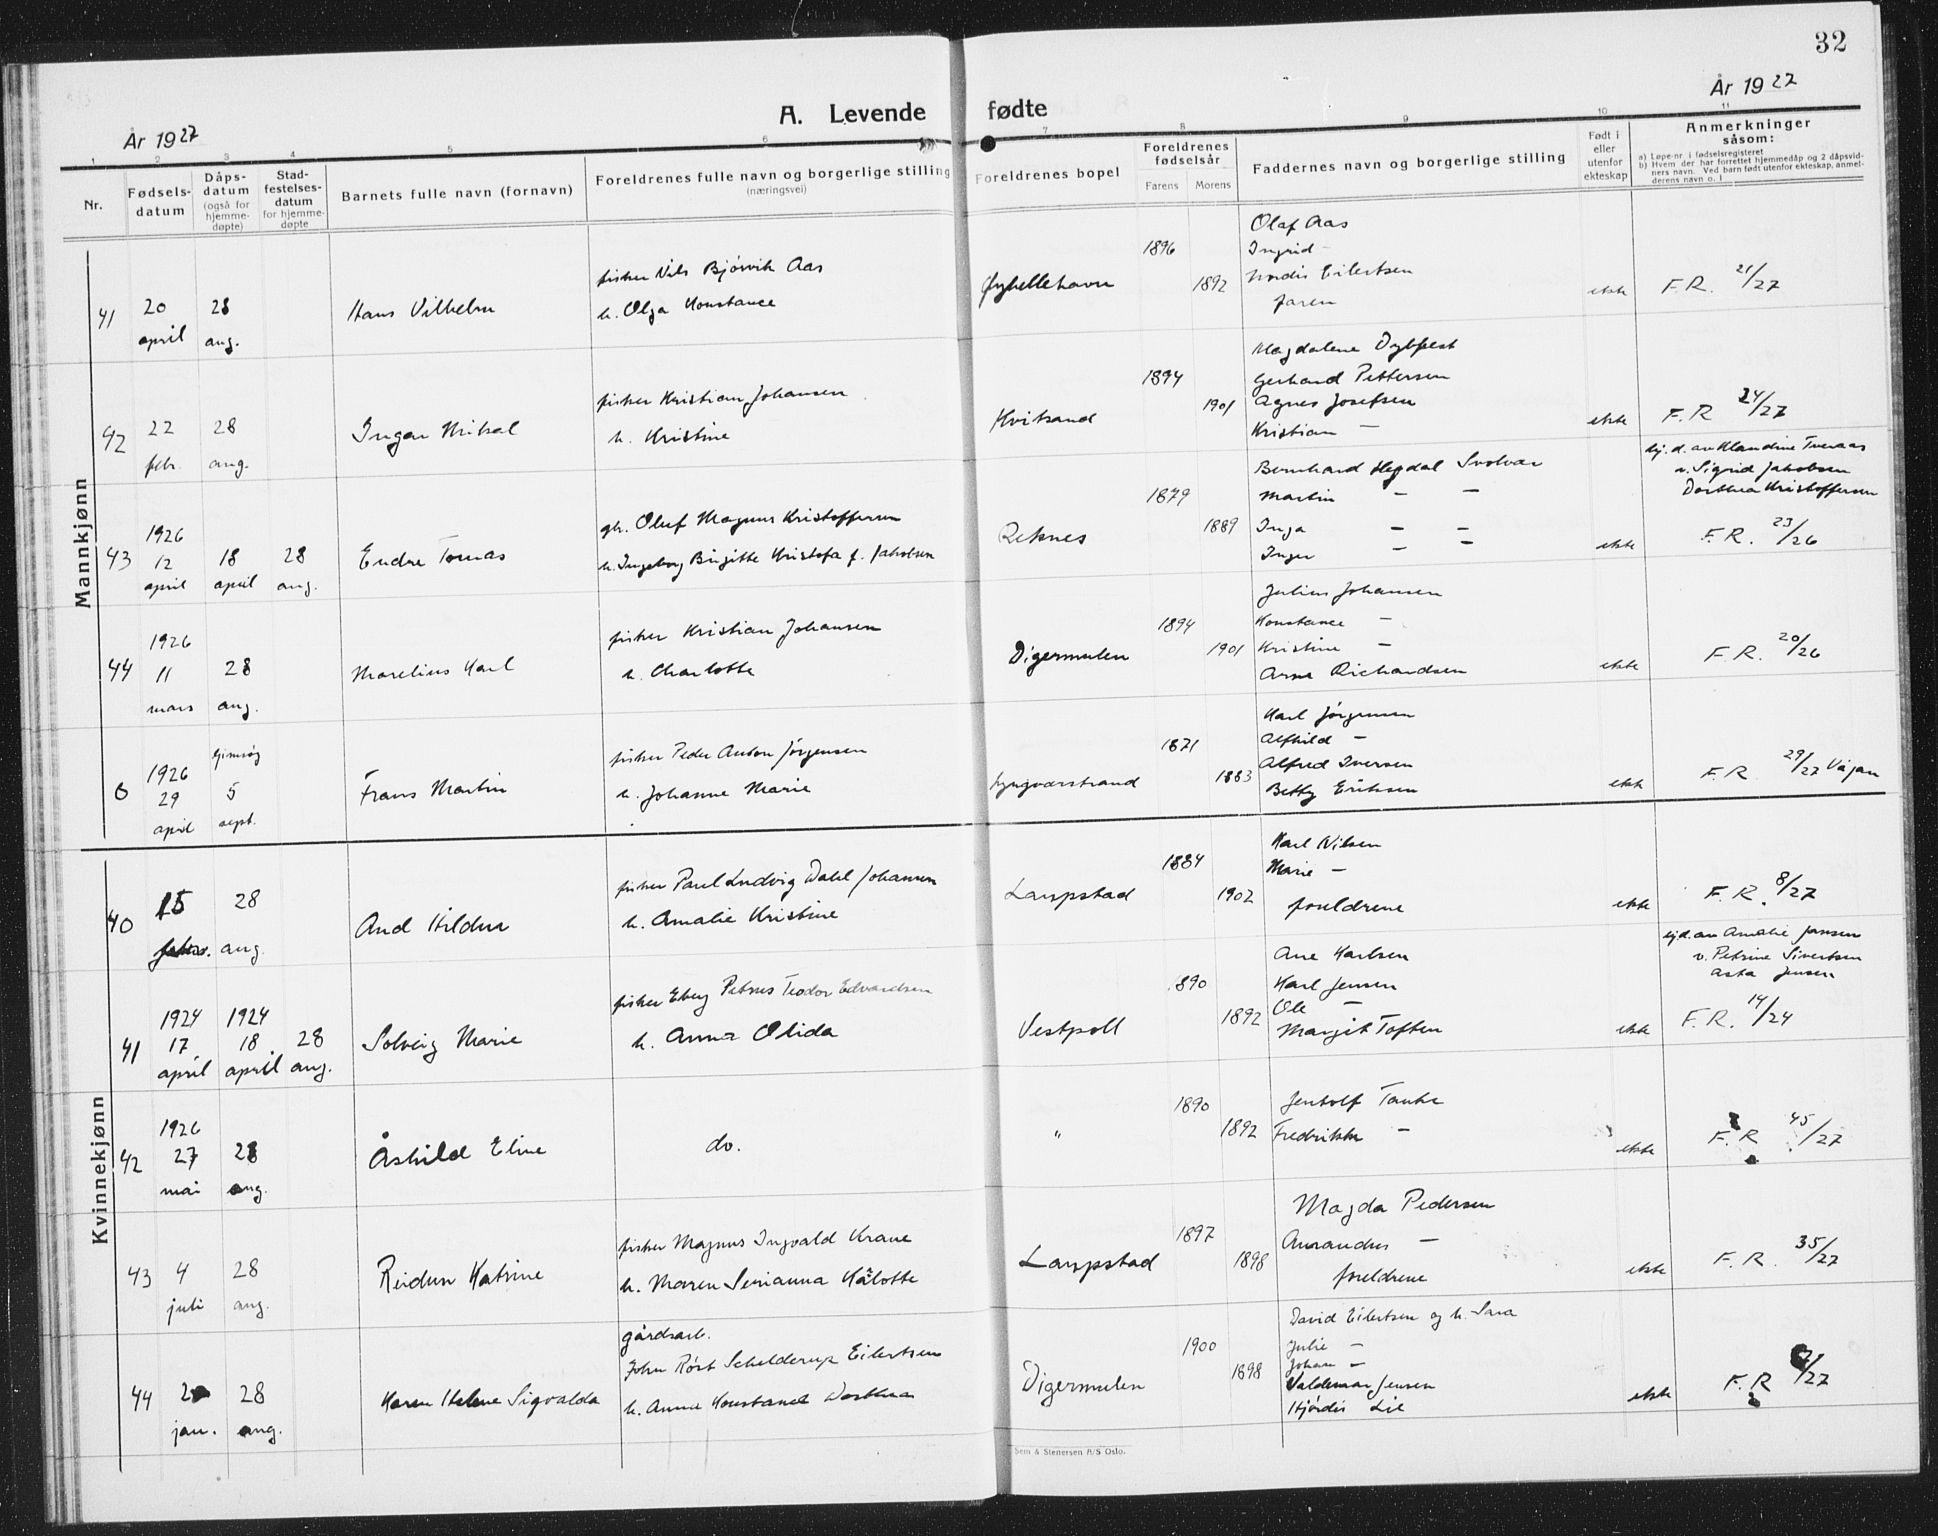 32
År 1927
År 1927
A. Levende fødte
1 2 3 4 5 6 7 8 9 10 11
Nr.
Fødsels-
datum
Dåps-
datum
(også for
hjemme-
døpte)
Stad-
festelses-
datum
for hjemme-
døpte
Barnets fulle navn (fornavn)
Foreldrenes fulle navn og borgerlige stilling
(næringsvei)
Foreldrenes bopel
Foreldrenes
fødselsår
Farens Morens
Faddernes navn og borgerlige stilling
Født i
eller
utenfor
ekteskap
Anmerkninger
såsom:
a) Løpe-nr i fødselsregisteret
b) Hvem der har forrettet hjemmedåp og 2 dåpsvid-
ners navn. Ved barn født utenfor ekteskap, anmel-
derens navn o. l
Mannkjønn
41
20
april
28
aug.
Hans Vilhelm
fisker Nils Bjørvik Aas
h. Olga Konstance
1896
1892
Olaf Aas
Ingrid -
Nordis Eilertsen
faren
ekte
F.R. 21/27
42
22
febr.
28
aug.
fisker Kristian Johansen
h. Kristine
Kvitsand
1894
1901
Magdalene
Gerhard Pettersen
Agnes Josefsen
Kristian -
ekte
F.R 24/27
43
1926
12
april
18
april
28
aug.
Endre Tomas
Oluf Magnus Kristoffersen
h. Ingeborg Birgitte Kristofa f. Jakobsen
Reknes
1879
1889
Bernhard Hegdal Svolvær
Martin - -
Inga - -
Inger - -
ekte
hj. d. av Klandine Tveraas
v. Sigrid Jakobsen
Dorthea Kristoffersen
F.R. 23/26
44
1926
11
mars
28
aug.
Marelius Karl
fisker Kristian Johansen
h. Charlotte
Digermulen
1894
1901
Julius Johansen
Konstance -
Kristine -
Arne Richardsen
ekte
F.R. 20/26
6
1926
29
april
Gimsøy
5
sept.
Frans Martin
fisker Peder Anton Jørgensen
h. Johanne Marie
Lyngværstrand
1871
1883
Karl Jørgensen
Alfhild -
Alfred Iversen
Betty Eriksen
ekte
F.R. 29/27 Vågan
Kvinnekjønn
40
15
28
aug.
Aud Hildur
fisker Paul Ludvig Dahl Johansen
h. Amalie Kristine
Laupstad
1884
1902
Karl Nilsen
Marie -
foreldrene
ekte
F.R. 8/27
41
1924
17
april
1924
18
april
28
aug.
Solveig Marie
fisker Eberg Petrus Teodor Edvardsen
h. Anna Olida
Vestpoll
1890
1892
Ane Karlsen
Karl Jensen
Ole -
Margit Toften
ekte
hj.d. av Amalie Jansen
v. Petrine Sivertsen
Asta Jensen
F.R. 14/24
42
1926
27
mai
28
aug.
Åshild Eline
do.
"
1890
1892
Jentolf
Fredrikke -
ekte
F.R 45/27
43
4
juli
28
aug.
Reidun Katrine
fisker Magnus Ingvald Krane
h. Maren Serianna
Laupstad
1897
1898
Magda Pedersen
Amandus -
foreldrene
ekte
F.R. 35/27
44
jan.
28
aug.
Karen Helene Sigvalda
gårdsarb.
John Røst Schelderup Eilertsen
h. Anna Konstanse Dorthea
Digermulen
1900
1898
David Eilertsen og h. Sara
Julie -
Johan -
Valdemar Jensen
Hjørdis Lie
ekte
F.R /27
Sem & Stenersen A/S Oslo.